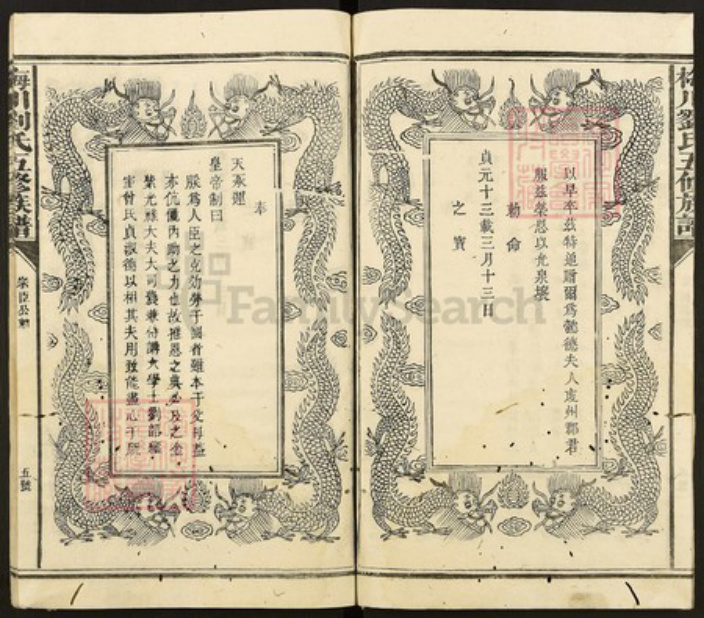 梅川劉氏五修族譜
以早卒茲特追贈爾為懿德夫人虔州郡君
服茲榮恩以光泉壤
勅命
貞元十三載三月十三日
之寶
奉
天承運
皇帝制曰
朕為人臣之克効勞于國者雖本于父母盖
亦伉儷內助之力也故推恩之典必及之
紫光祿大夫大司農兼侍講大學士劉
室曾氏貞淑德以相其夫用致能盡心于
梅川劉氏五修族譜
五號
FamilySearch